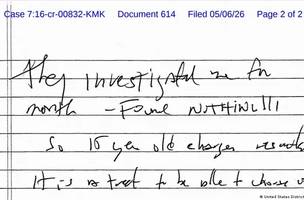 Case 7:16-cr-00832-KMK Document 614 Filed 05/06/26 Page 2 of 2
They investigated me for
month - Found NOTHING!!!
So 15 year old charges
It is a treat to be able to choose
© United States District